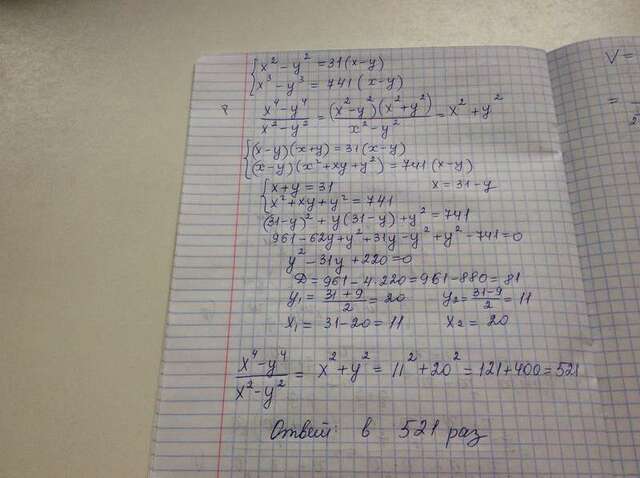 x² - y² = 31(x-y)
x³ - y³ = 741(x-y)
(x⁴-y⁴)/(x²-y²) = (x²-y²)(x²+y²)/(x²-y²) = x² + y²
(x-y)(x+y) = 31(x-y)
(x-y)(x²+xy+y²) = 741(x-y)
x+y = 31 x = 31-y
x²+xy+y² = 741
(31-y)² + y(31-y) + y² = 741
961-62y+y²+31y-y²+y²-741=0
y² - 31y + 220 = 0
D = 961 - 4·220 = 961-880 = 81
y₁ = (31+9)/2 = 20 y₂ = (31-9)/2 = 11
x₁ = 31-20 = 11 x₂ = 20
(x⁴-y⁴)/(x²-y²) = x²+y² = 11²+20² = 121+400 = 521
Ответ: в 521 раз
V =
=